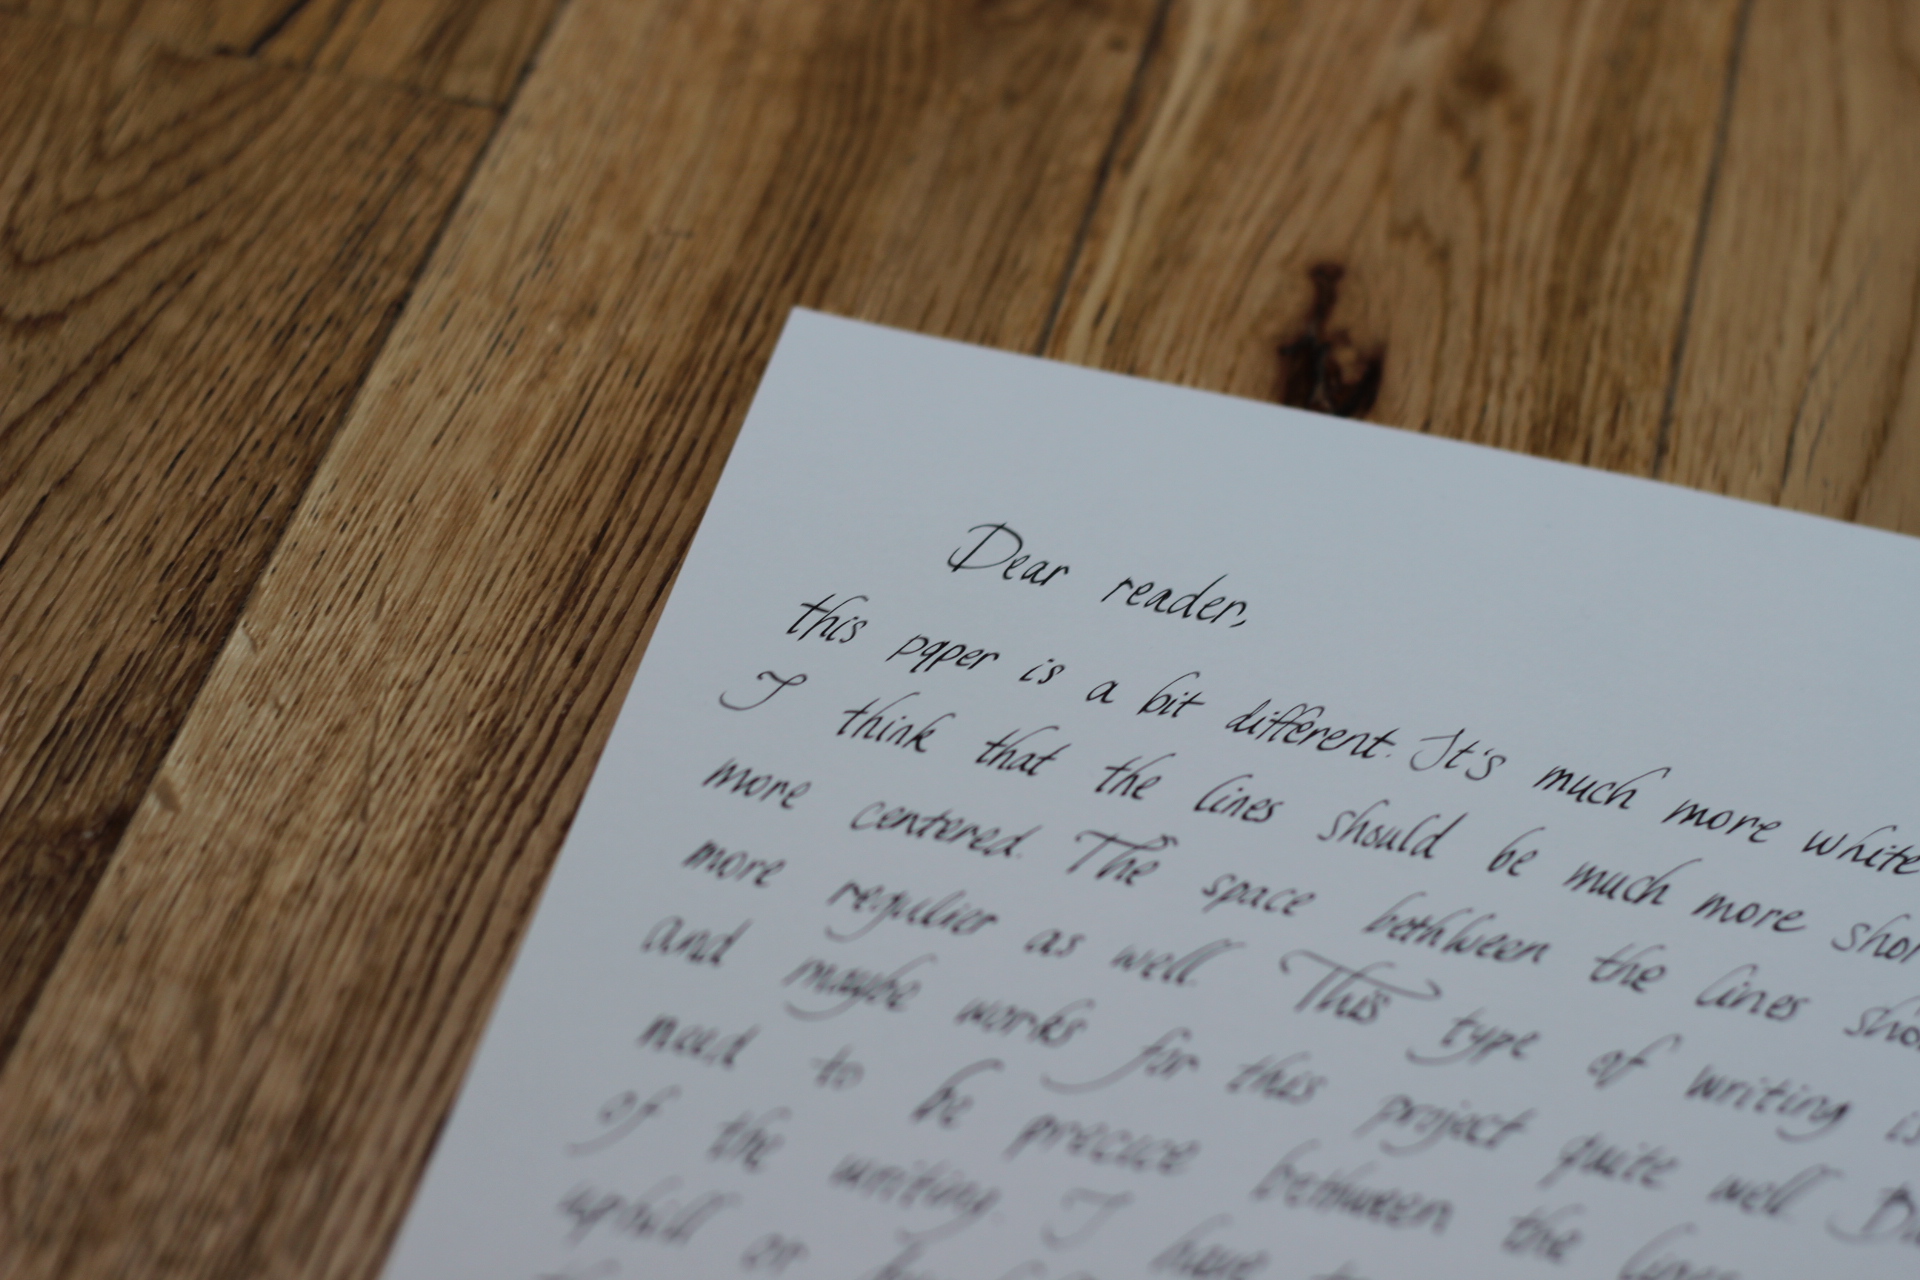 Dear reader,
this pqper is a bit different. It's much more white
I think that the lines should be much more
more centered. The space bethween the lines
more regulier as well. This type of writing is
and maybe works for this project quite well.
need to be precice bethween the lines
of the writing. I have
uphill or